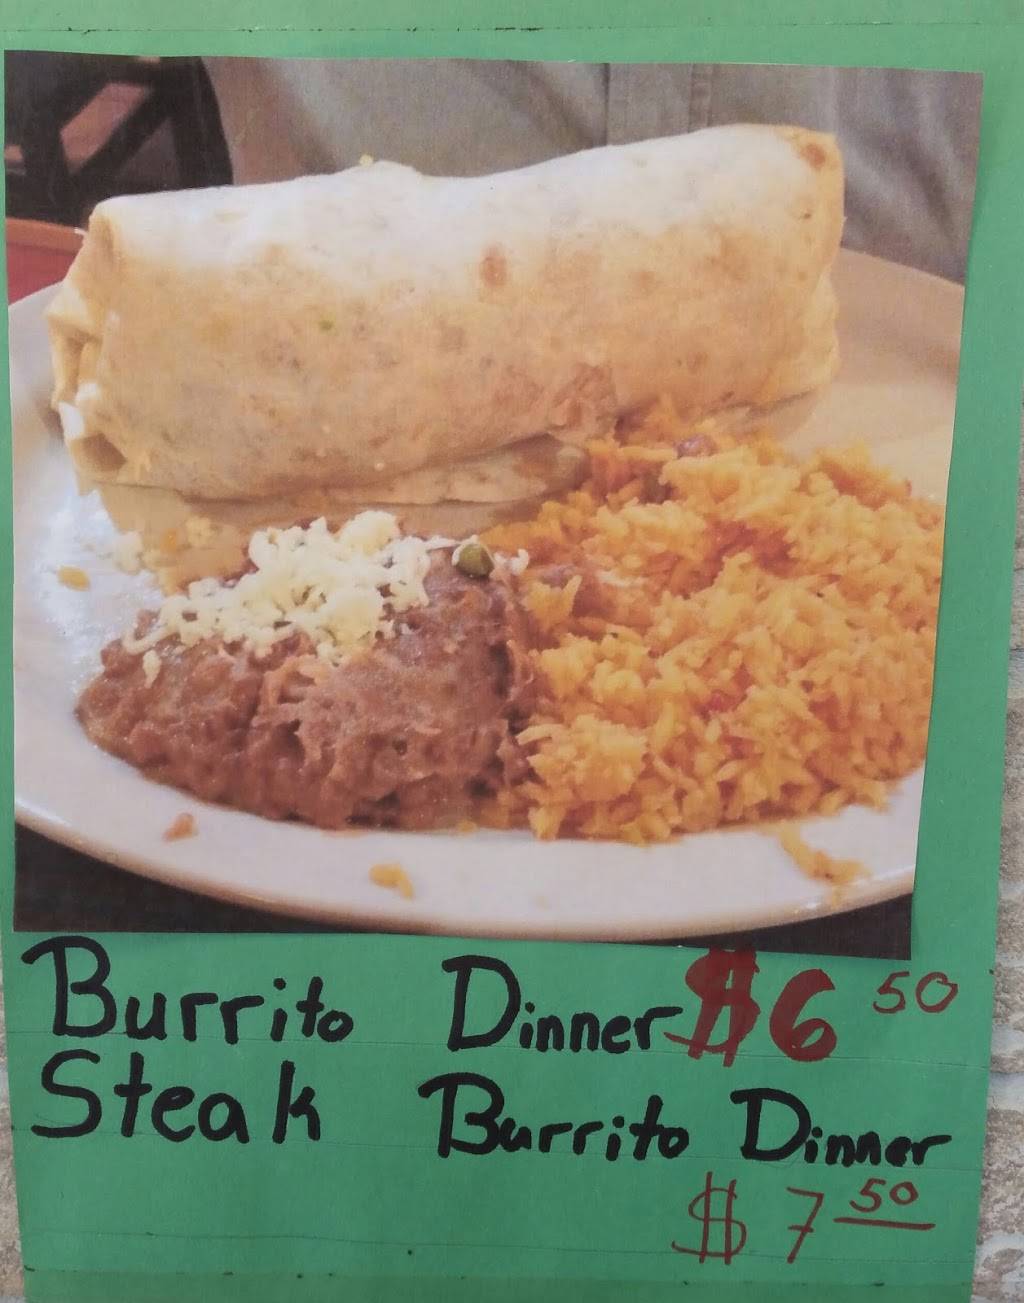 Burrito Dinner $6 50
Steak Burrito Dinner
$7 50